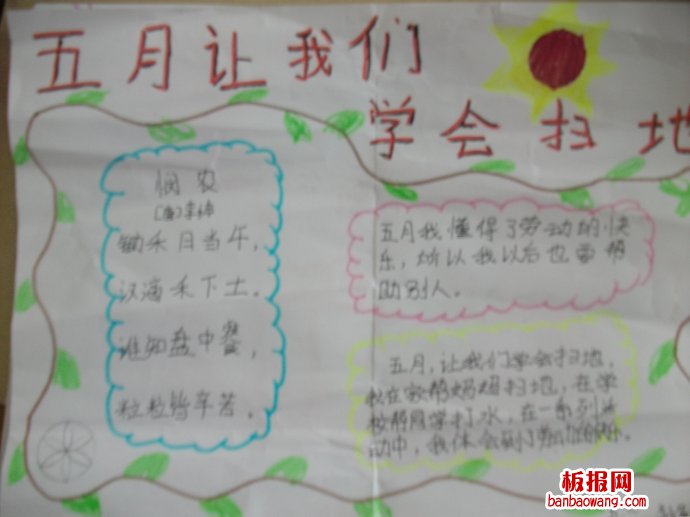 五月让我们
学会扫地
悯农
(唐)李绅
锄禾日当午，
汉滴禾下土。
谁知盘中餐，
粒粒皆辛苦。
五月我懂得了劳动的快
乐，所以我以后也要帮
助别人。
五月，让我们学会扫地，
我在家帮妈妈扫地，在学
校帮同学打水，在一系列活
动中，我体会到了劳动的快乐。
板报网
banbaowang.com